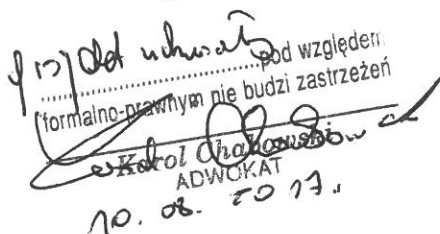 projekt uchwały
pod względem
formalno-prawnym nie budzi zastrzeżeń
Karol
ADWOKAT
10. 08. 2017.